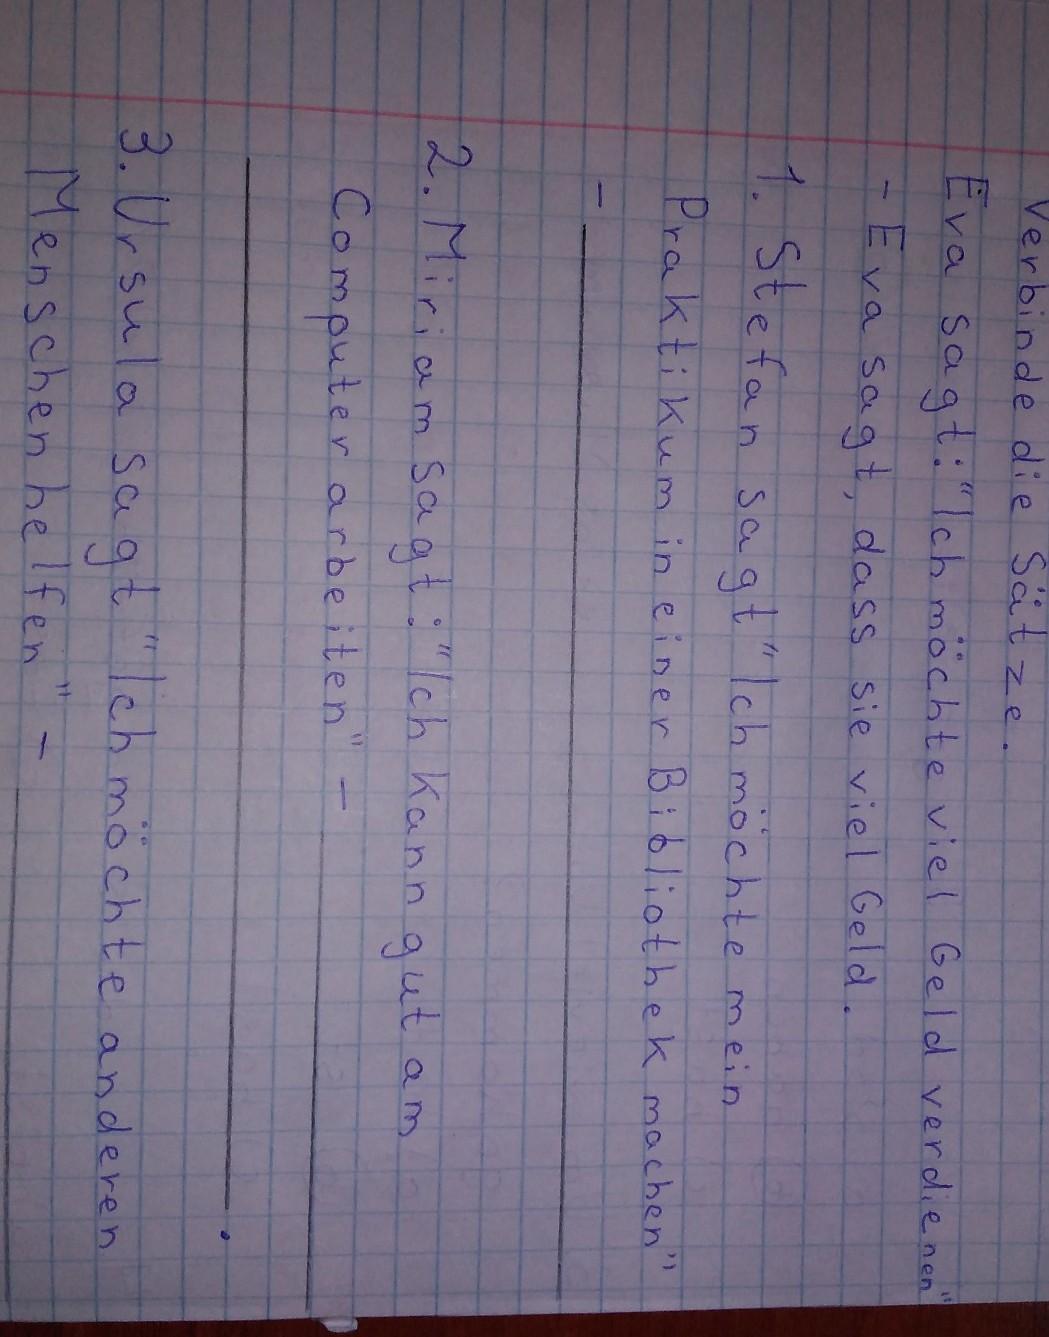 Verbinde die Sätze.
Eva sagt: "Ich möchte viel Geld verdienen"
- Eva sagt, dass sie viel Geld.
1. Stefan sagt "Ich möchte mein
Praktikum in einer Bibliothek machen"
-
2. Miriam sagt: "Ich kann gut am
Computer arbeiten" -
.
3. Ursula sagt "Ich möchte anderen
Menschen helfen" -